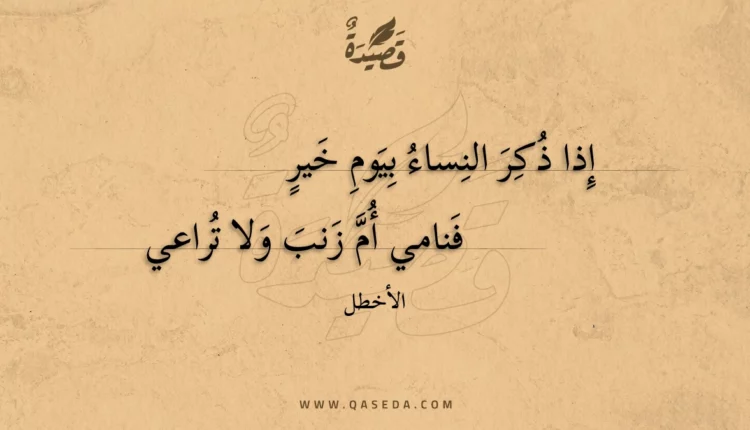 قَصِيْدَةٌ
إِذا ذُكِرَ النِساءُ بِيَومِ خَيرٍ
فَنامي أُمَّ زَنبَ وَلا تُراعي
الأخطل
WWW.QASEDA.COM